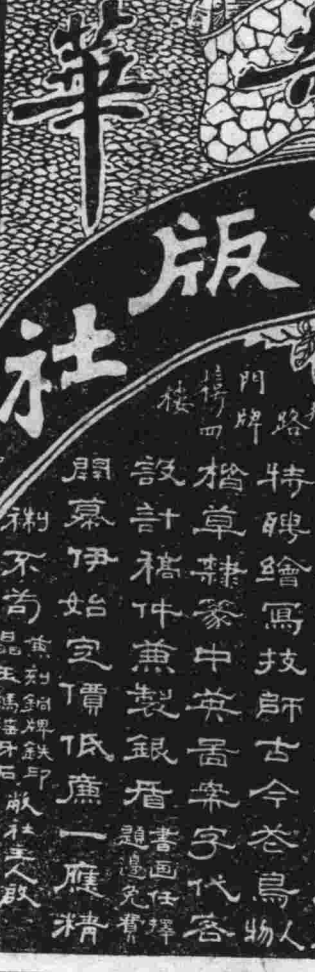 華
版社
路
門牌
四
楼
特聘繪寫技師古今花鳥人物
楷草隸篆中英圖案字代客
設計稿件兼製銀盾書画任擇題邊免費
開幕伊始定價低廉一應精
不苟
兼刻銅牌鉄印
晶玉
牙石
敝社主人啟